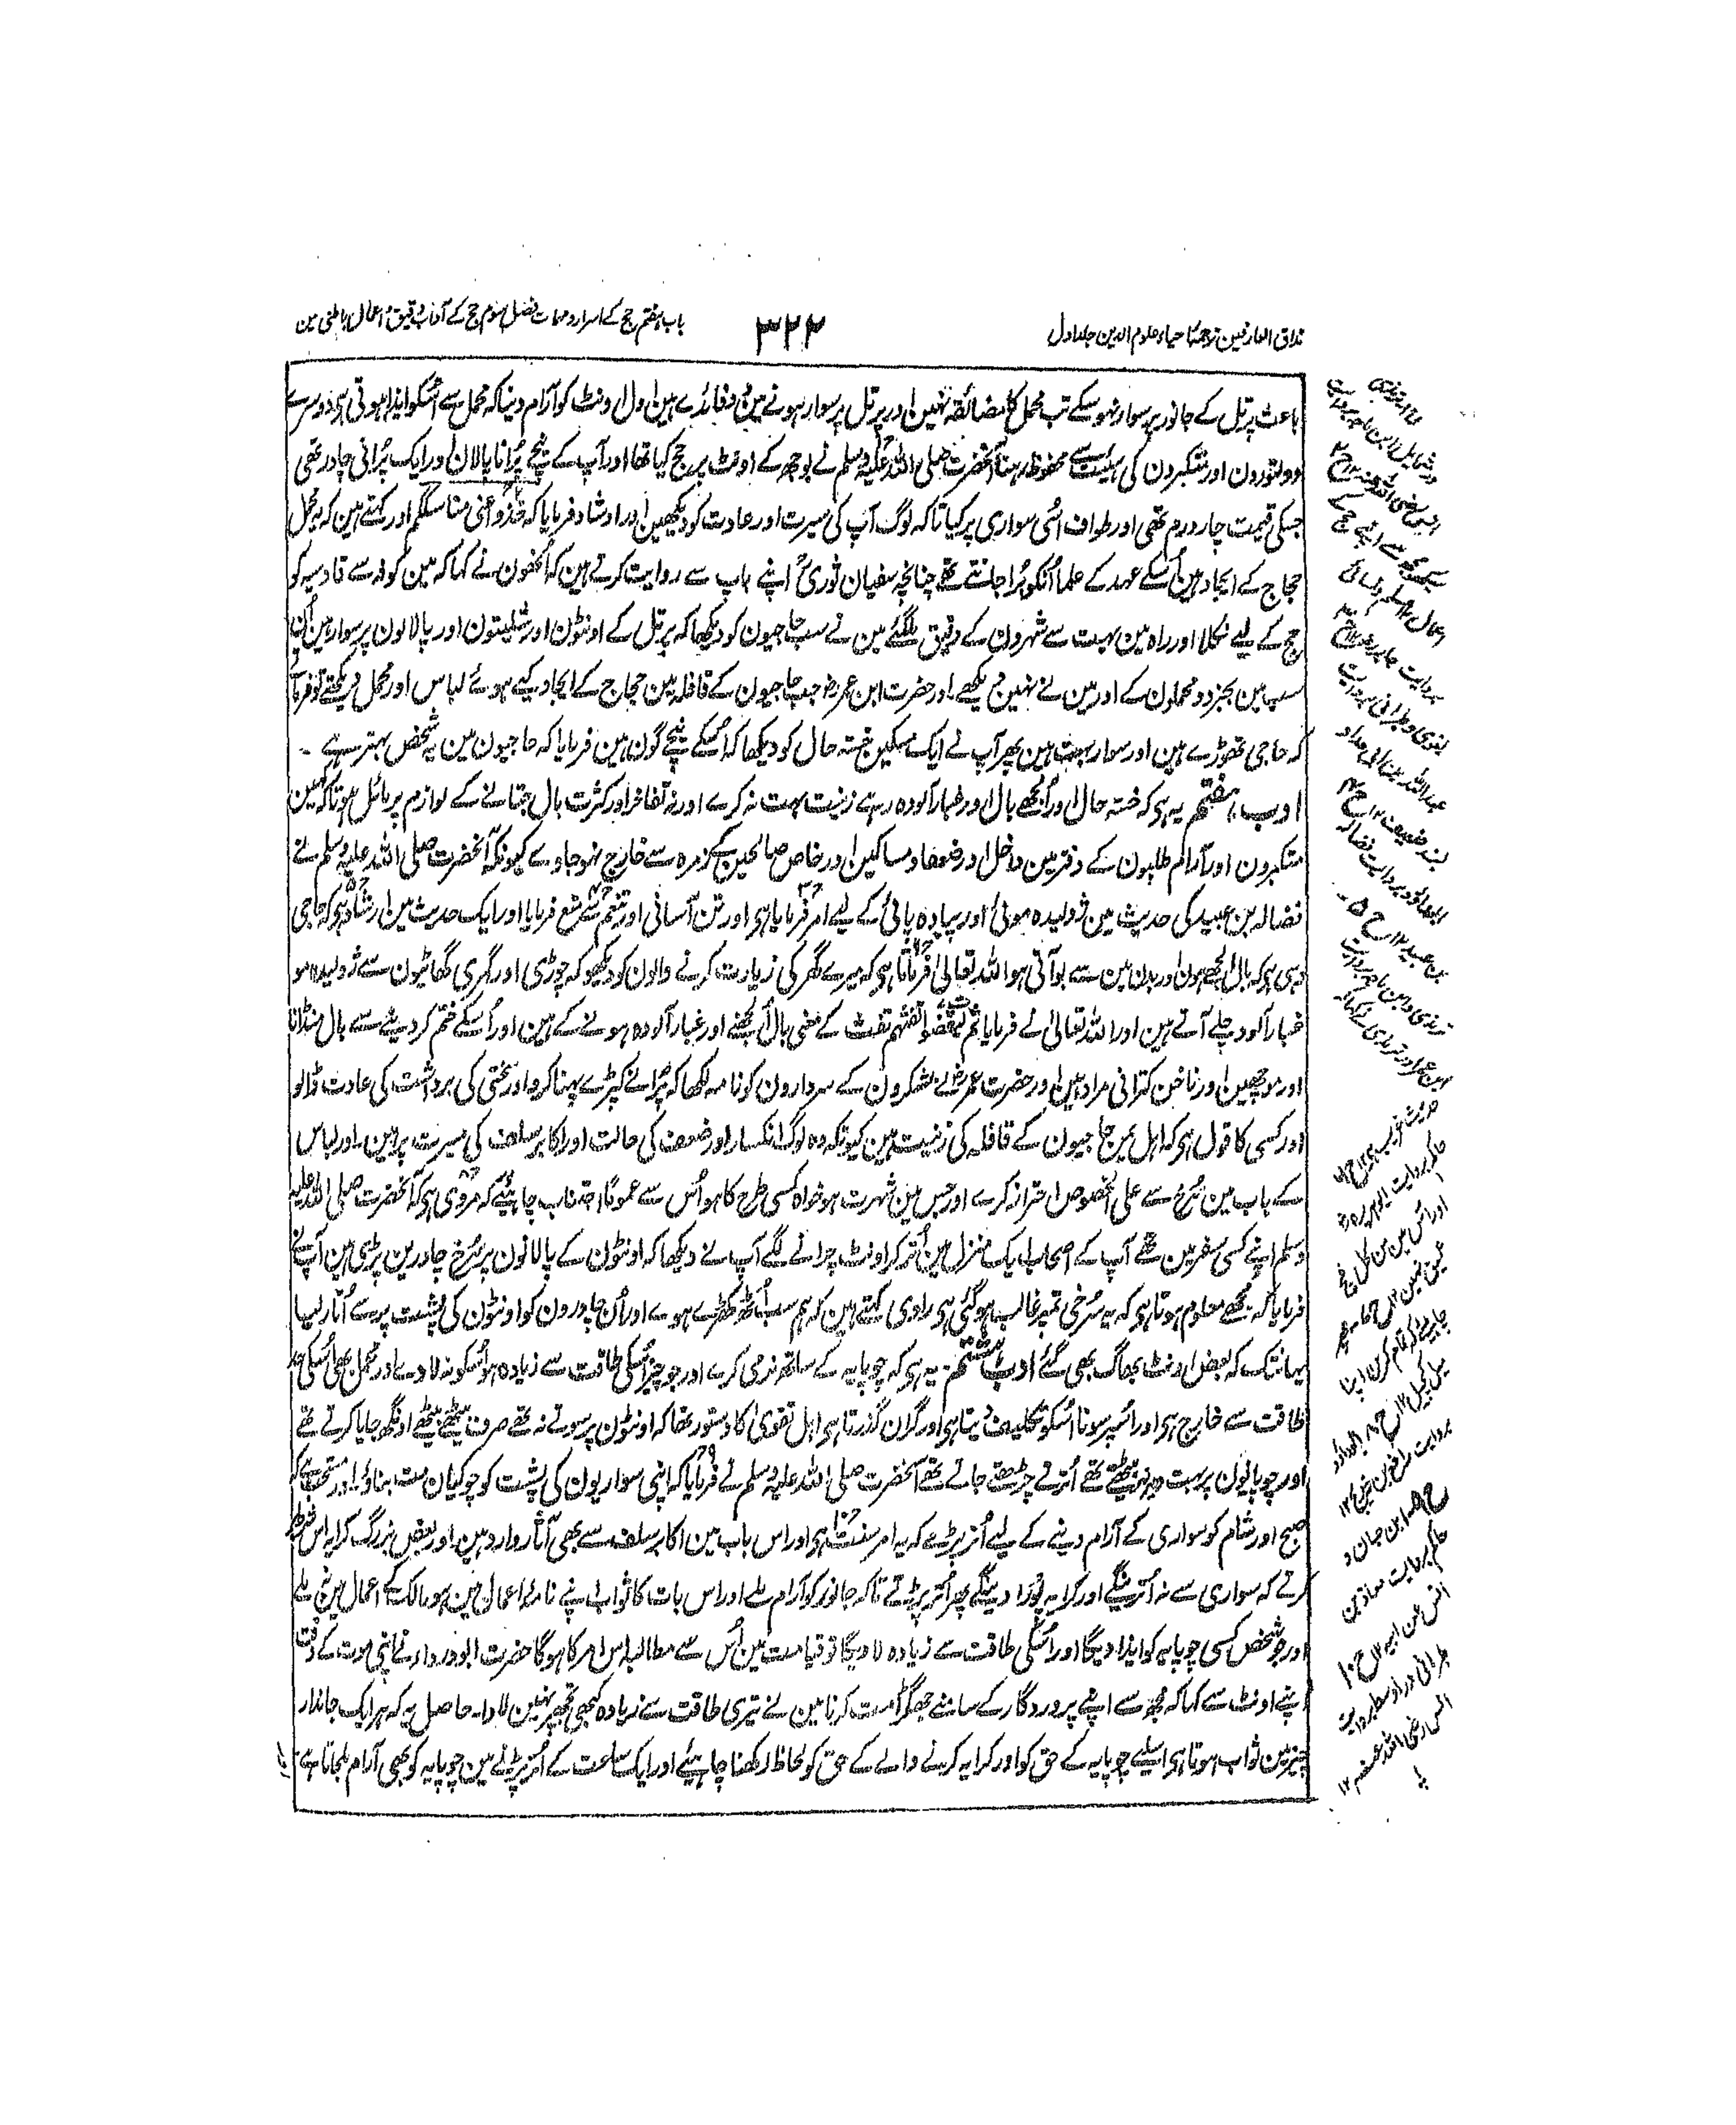 مذاق العارفین ترجمہ احیاء علوم الدین جلد اول
۳۲۲
باب ہفتم حج کے اسرار و مہمات فصل سوم حج کے آداب دقیق و اعمال باطنی مین
باعث پرتل کے جانور پر سوار نہو سکے تب محمل کا مضائقہ نہین اور پرتل پر سوار ہونے مین دو فائدے ہین اول اونٹ کو آرام دینا کہ محمل سے اُسکو ایذا ہوتی ہی دوسرے
دولتورون اور متکبرون کی ہیئت سے محفوظ رہنا آنحضرت صلی اللہ علیہ وسلم نے بوجھ کے اونٹ پر حج کیا تھا اور آپ کے نیچے پُرانا پالان اور ایک پُرانی چادر تھی
جسکی قیمت چار درم تھی اور طواف اسُی سواری پر کیا تاکہ لوگ آپ کی سیرت اور عادت کو دیکھین اور ارشاد فرمایا کہ خذوا عنی مناسککم اور کہتے ہین کہ یہ محمل
حجاج کے ایجاد ہین اُسکے عہد کے علما اُنکو بُرا جانتے تھے چنانچہ سفیان ثوری اپنے باپ سے روایت کرتے ہین کہ اُنھون نے کہا کہ مین کوفہ سے قادسیہ کو
حج کے لیے نکلا اور راہ مین بہت سے شہرون کے رفیق ملگئے مین نے سب حاجیون کو دیکھا کہ پرتل کے اونٹون اور شلیتون اور پالانون پر سوار ہین اُن
سب مین بجز دو محملون کے اور مین نے نہین دیکھے اور حضرت ابن عمر رض جب حاجیون کے قافلہ مین حجاج کے ایجاد کیے ہوئے لباس اور محمل دیکھتے تو فرماتے
کہ حاجی تھوڑے ہین اور سوار بہت ہین پھر آپ نے ایک مسکین خستہ حال کو دیکھا کہ اُسکے نیچے گون ہین فرمایا کہ حاجیون مین یہ شخص بہتر ہے -
ادب ہفتم یہ ہی کہ خستہ حال اور اُلجھے بال اور غبار آلودہ رہے زینت بہت نہ کرے اور نہ تفاخر اور کثرت بال جتانے کے لوازم پر مائل ہو تاکہ کہین
متکبرون اور آرام طلبون کے دفتر مین داخل اور ضعفا و مساکین اور خاص صالحین کے زمرہ سے خارج نہو جاوے کیونکہ آنحضرت صلی اللہ علیہ وسلم نے
فضالہ بن عبید کی حدیث مین ژولیدہ موئی اور پیادہ پائی کے لیے امر فرمایا ہی اور تن آسانی اور تنعم سے منع فرمایا اور ایک حدیث مین ارشاد ہی کہ حاجی
وہی ہی کہ بال اُلجھے ہون اور بدن مین سے بو آتی ہو اللہ تعالی فرماتا ہی کہ میرے گھر کی زیارت کرنے والون کو دیکھو کہ چوڑی اور گہری گھاٹیون سے ژولیدہ مو
غبار آلود چلے آتے ہین اور اللہ تعالیٰ نے فرمایا ثم لیقضوا تفثہم تفث کے معنی بال اُلجھنے اور غبار آلودہ ہونے کے ہین اور اُسکے ختم کر دینے سے بال منڈانا
اور موچھین اور ناخن کترانی مراد ہین اور حضرت عمر رض نے لشکرون کے سردارون کو نامہ لکھا کہ پُرانے کپڑے پہنا کرو اور سختی کی برداشت کی عادت ڈالو
اور کسی کا قول ہی کہ اہل یمن حاجیون کے قافلہ کی زینت ہین کیونکہ وہ لوگ انکسار اور ضعف کی حالت اور اکابر سلف کی سیرت پر ہین۔ اور لباس
کے باب مین سُرخ سے علی الخصوص احتراز کرے اور جس مین شہرت ہو خواہ کسی طرح کا ہو اُس سے عموماً اجتناب چاہئیے کہ مروی ہی کہ آنحضرت صلی اللہ علیہ
وسلم اپنے کسی سفر مین تھے آپ کے اصحاب ایک منزل مین اُتر کر اونٹ چرانے لگے آپ نے دیکھا کہ اونٹون کے پالانون پر سُرخ چادرین پڑی ہین آپ نے
فرمایا کہ مجھے معلوم ہوتا ہی کہ یہ سُرخی تمپر غالب ہو گئی ہی راوی کہتے ہین کہ ہم سب اُٹھ کھڑے ہوے اور اُن چادرون کو اونٹون کی پشت پر سے اُتار لیا
یہانتک کہ بعض اونٹ بھاگ بھی گئے ادب ہشتم - یہ ہی کہ چوپایہ کے ساتھ نرمی کرے اور جو چیز اُسکی طاقت سے زیادہ ہو اُسکو نہ لادے اور محمل بھی اُسکی حد
طاقت سے خارج ہی اور اسُپر سونا اُسکو تکلیف دیتا ہی اور گران گذرتا ہی اہل تقویٰ کا دستور تھا کہ اونٹون پر سوتے نہ تھے صرف بیٹھے بیٹھے اونگھ جایا کرتے تھے
اور چوپایون پر بہت دیر نہ بیٹھتے تھے اُترتے چڑھتے جاتے تھے آنحضرت صلی اللہ علیہ وسلم نے فرمایا کہ اپنی سواریون کی پشت کو چوکیان مت بناؤ اور مستحب ہے کہ
صبح اور شام کو سواری کے آرام دینے کے لیے اُتر پڑے کہ یہ امر سنت ہی اور اس باب مین اکابر سلف سے بھی آثار وارد ہین اور بعض بزرگ کرایہ اس شرط پر
کرتے کہ سواری سے نہ اُترینگے اور کرایہ پورا دینگے پھر اُتر پڑتے تاکہ جانور کو آرام ملے اور اس بات کا ثواب اپنے نامۂ اعمال مین ہو مالک کے اعمال مین نہ ملے
اور جو شخص کسی چوپایہ کو ایذا دیگا اور اُسکی طاقت سے زیادہ لادیگا تو قیامت مین اُس سے مطالبہ اس امر کا ہوگا حضرت ابو درداء نے اپنی موت کے وقت
اپنے اونٹ سے کہا کہ مجھ سے اپنے پروردگار کے سامنے جھگڑا مت کرنا مین نے تیری طاقت سے زیادہ کبھی تجھپر نہین لادا۔ حاصل یہ کہ ہر ایک جاندار
چیز مین ثواب ہوتا ہی اسلیے چوپایہ کے حق کو اور کرایہ کرنے والے کے حق کو لحاظ رکھنا چاہئیے اور ایک ساعت کے اُتر پڑنے مین چوپایہ کو بھی آرام ملجاتا ہے
در شمایل و ابن ماجہ بروایت
انس رضی اللہ عنہ ۱۲ ح ۲
سیکھو مجھ سے اپنے حج کے
اعمال ۱۲ مسلم و نسائی
بروایت جابر رض ۱۲ ح ۳
بغوی و طبرانی بروایت
عبد اللہ بن ابی حدرد
بسند ضعیف ۱۲ ح ۴
ابوداؤد بروایت فضالہ
بن عبید ۱۲ ح ۵ -
ترمذی و ابن ماجہ بروایت
ابن عمر اور ترمذی نے کہا کہ
حدیث غریب ہی ۱۲ ح ۶
حاکم بروایت ابوہریرہ رض
اور اس مین من کل فج
عمیق نہین ۱۲ ح ۷ پھر
چاہیے کہ تمام کرین اپنا
میل کچیل ۱۲ ح ۸ ابو داؤد
بروایت رافع بن خدیج ۱۲
ح ۹ ابن حبان و
حاکم بروایت معاذ بن
انس عن ابیہ ۱۲ ح ۱۰
طبرانی در اوسط بروایت
انس رضی اللہ عنہ ۱۲